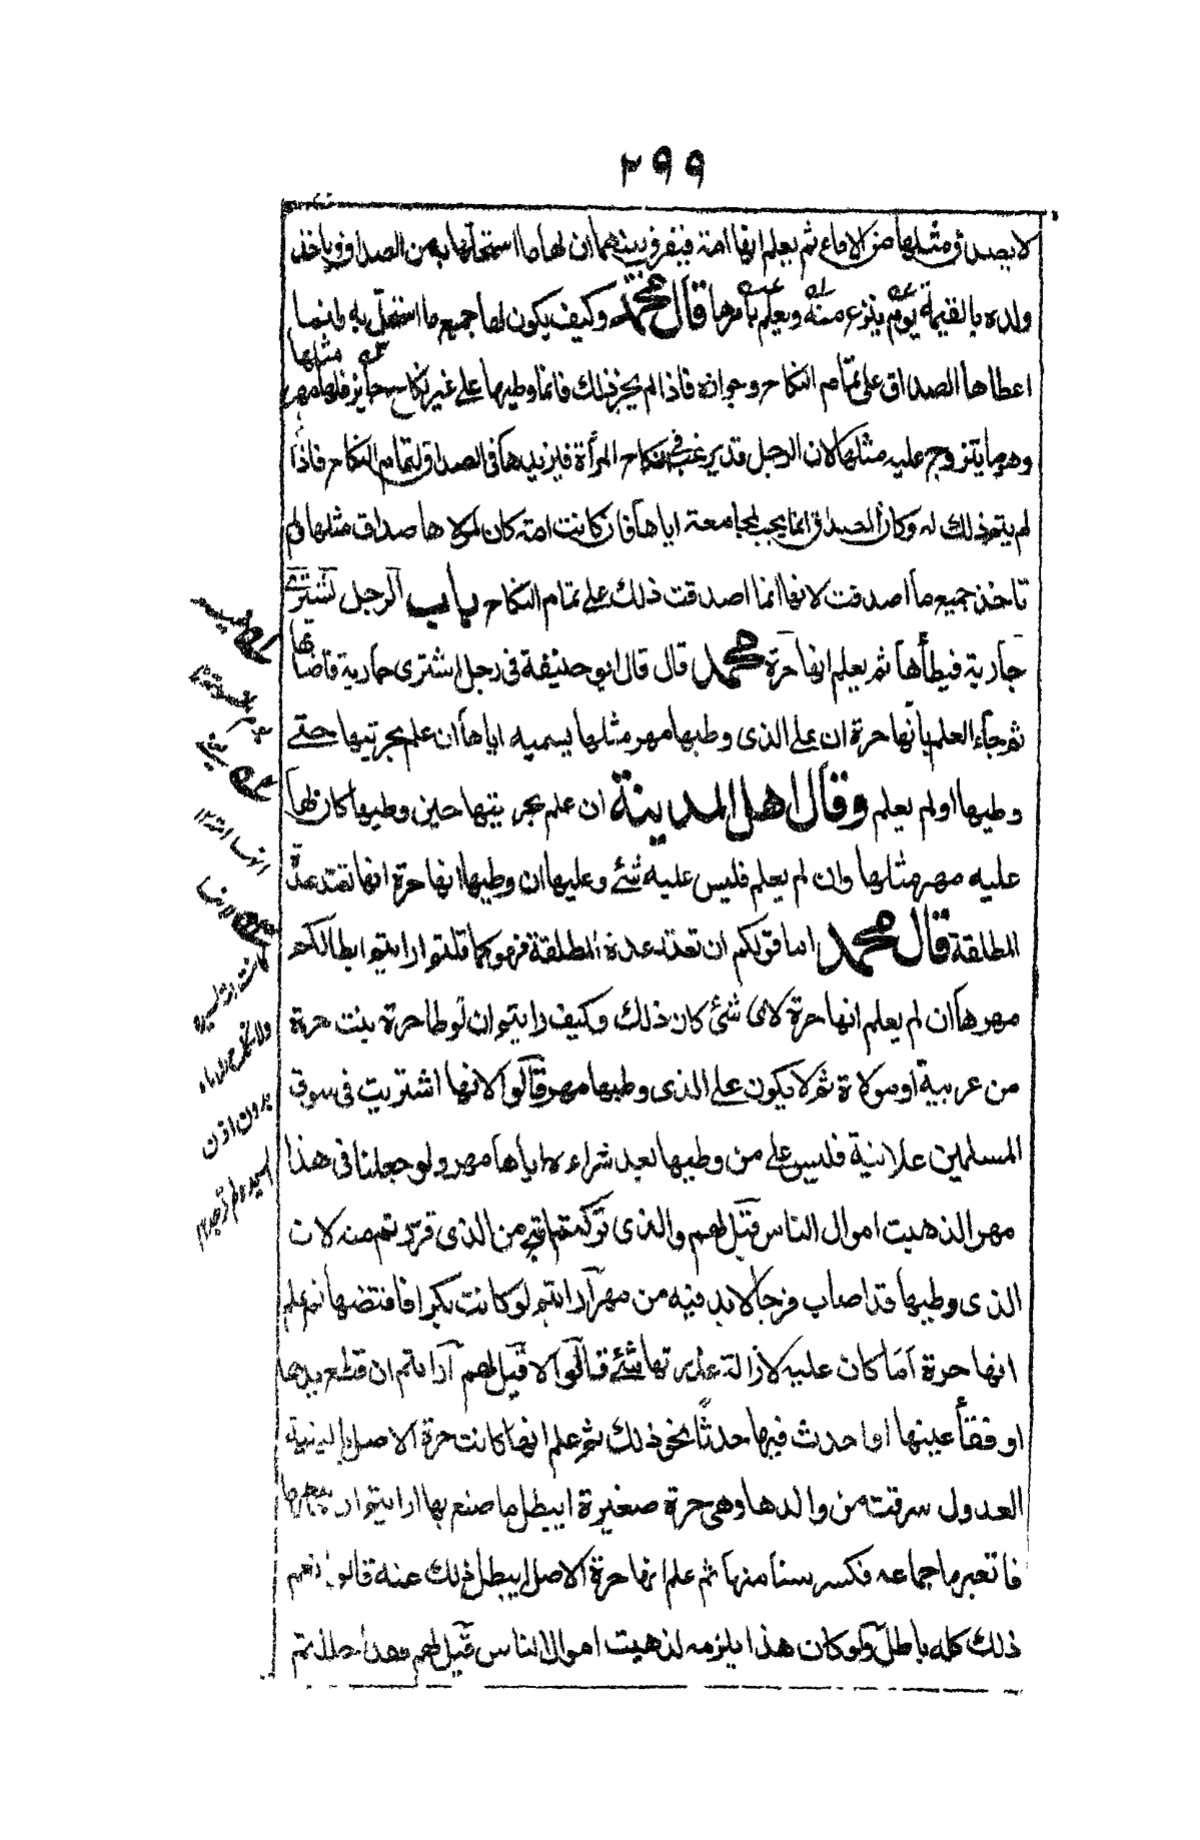 ٢٩٩
لا يصدق مثلها من الاماء ثم يعلم انها امة فيفرق بينهما ان لها ما استحلها به من الصداق وياخذ
ولده بالقيمة يوم ينزع منه ويعلم بامرها قال محمد وكيف يكون لها جميع ما استحل به وانما
اعطاها الصداق على تمام النكاح وجوازه فاذا لم يجز ذلك فانما وطيها على غير نكاح جايز فلها مهر مثلها
وهو ما يتزوج عليه مثلها لان الرجل قد يرغب في نكاح المرأة فيزيدها في الصداق لتمام النكاح فاذا
لم يتم ذلك له وكان الصداق انما يجب لمجامعة اياها فان كانت امة كان لمولاها صداق مثلها ولم
تاخذ جميع ما اصدقت لانها انما اصدقت ذلك على تمام النكاح باب الرجل يشتري
جارية فيطأها ثم يعلم انها حرة محمد قال قال ابو حنيفة في رجل اشترى جارية فاصابها
ثم جاء العلم بانها حرة ان على الذى وطيها مهر مثلها بمسيسه اياها ان علم بحريتها حتى
وطيها او لم يعلم وقال اهل المدينة ان علم بحريتها حين وطيها كان لها
عليه مهر مثلها وان لم يعلم فليس عليه شئ وعليها ان وطيها انها حرة انها تعتد عدة
المطلقة قال محمد اما قولكم ان تعتد عدة المطلقة فهو كما قلتم ارايتم ابطالكم
مهرها ان لم يعلم انها حرة لاى شئ كان ذلك وكيف رايتم ان توطا حرة بنت حرة
من عربية او مولاة ثم لا يكون على الذى وطيها مهر قالوا لانها اشتريت فى سوق
المسلمين علانية فليس على من وطيها بعد شراءه اياها مهر ولو جعلنا فى هذا
مهر الذهبت اموال الناس قيل لهم والذى تركتم اقبح من الذى فررتم منه لان
الذى وطيها قد اصاب فرجا لا بد فيه من مهر ارايتم لو كانت بكرا فافتضها ثم علم
انها حرة اما كان عليه لازالة عذرتها شئ قالوا لا قيل لهم ارايتم ان قطع يدها
او فقأ عينها او احدث فيها حدثا نحو ذلك ثم علم انها كانت حرة الاصل بالبينة
العدول سرقت من والدها وهى حرة صغيرة ايبطل ما صنع بها ارايتم ان
جماعه فكسر سنا منها ثم علم انها حرة الاصل ايبطل ذلك عنه قالوا نعم
ذلك كله باطل ولو كان هذا يلزمه لذهبت اموال الناس قيل لهم
بدون اذن